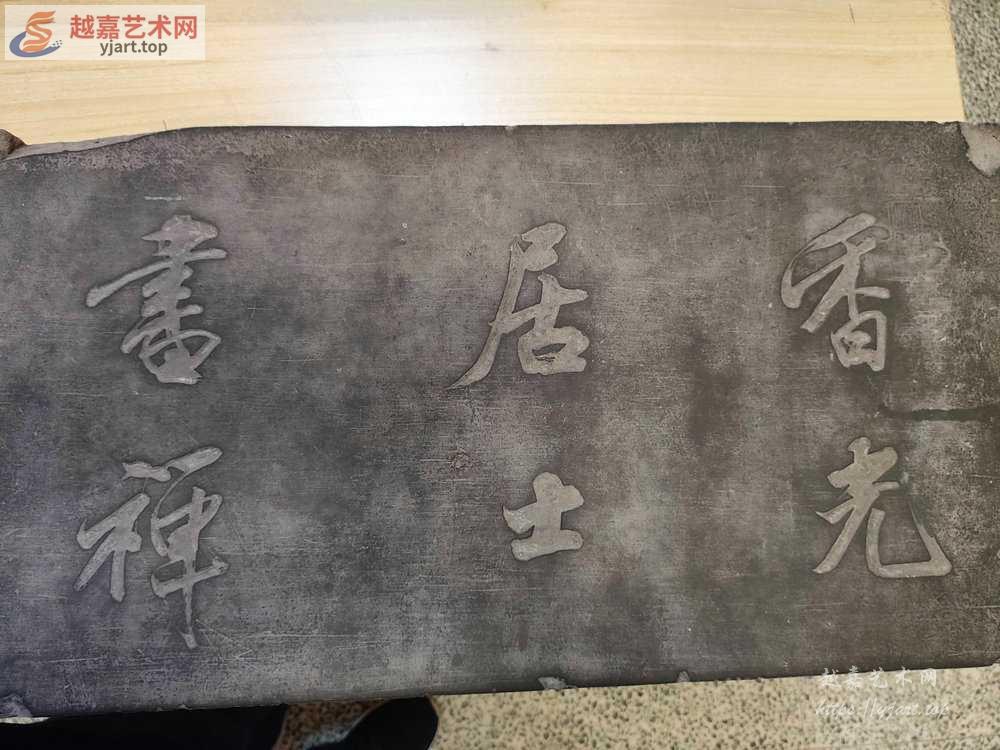 越嘉艺术网
yjart.top
香光
居士
書禅
越嘉艺术网
https://yjart.top